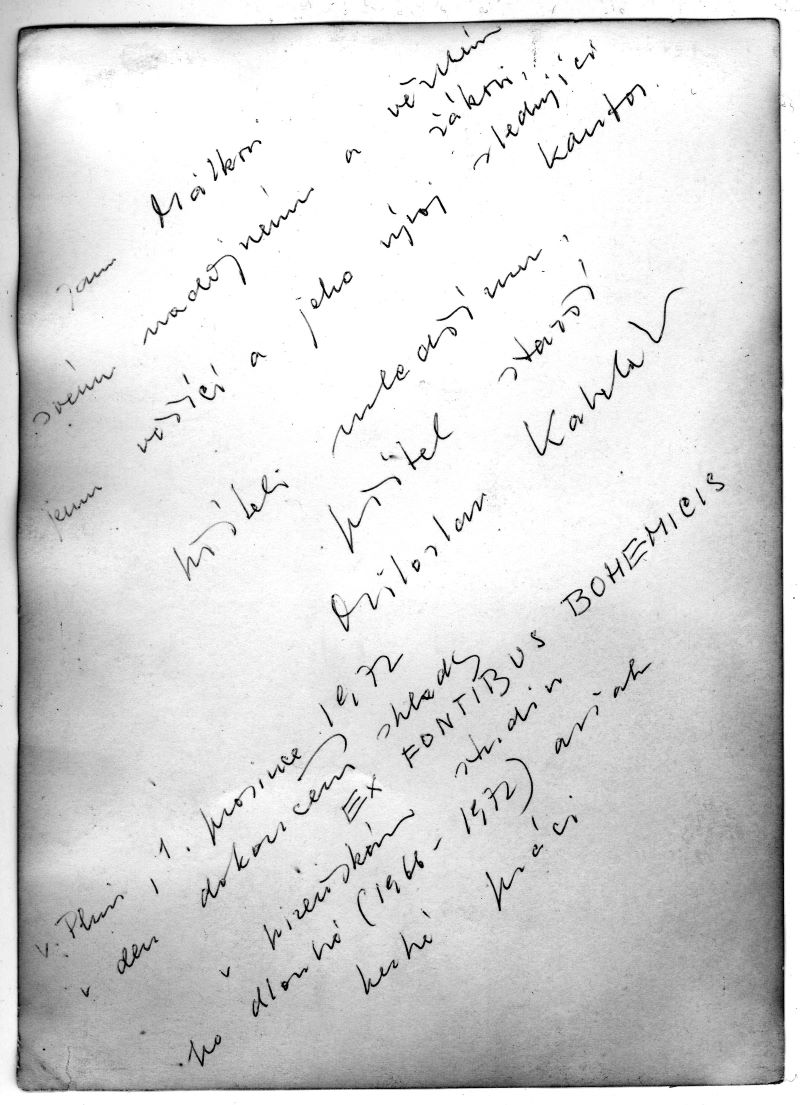 Janu Málkovi
svému nadějnému a věrným žákovi,
jemu věřící a jeho vývoj sledující kantor.
příteli mladšímu,
přítel starší
Miloslav Kabeláč
v Plzni, 1. prosince 1972
v den dokončení skladby
EX FONTIBUS BOHEMICIS
v plzeňském studiu
po dlouhé (1966-1972) avšak
hezké práci